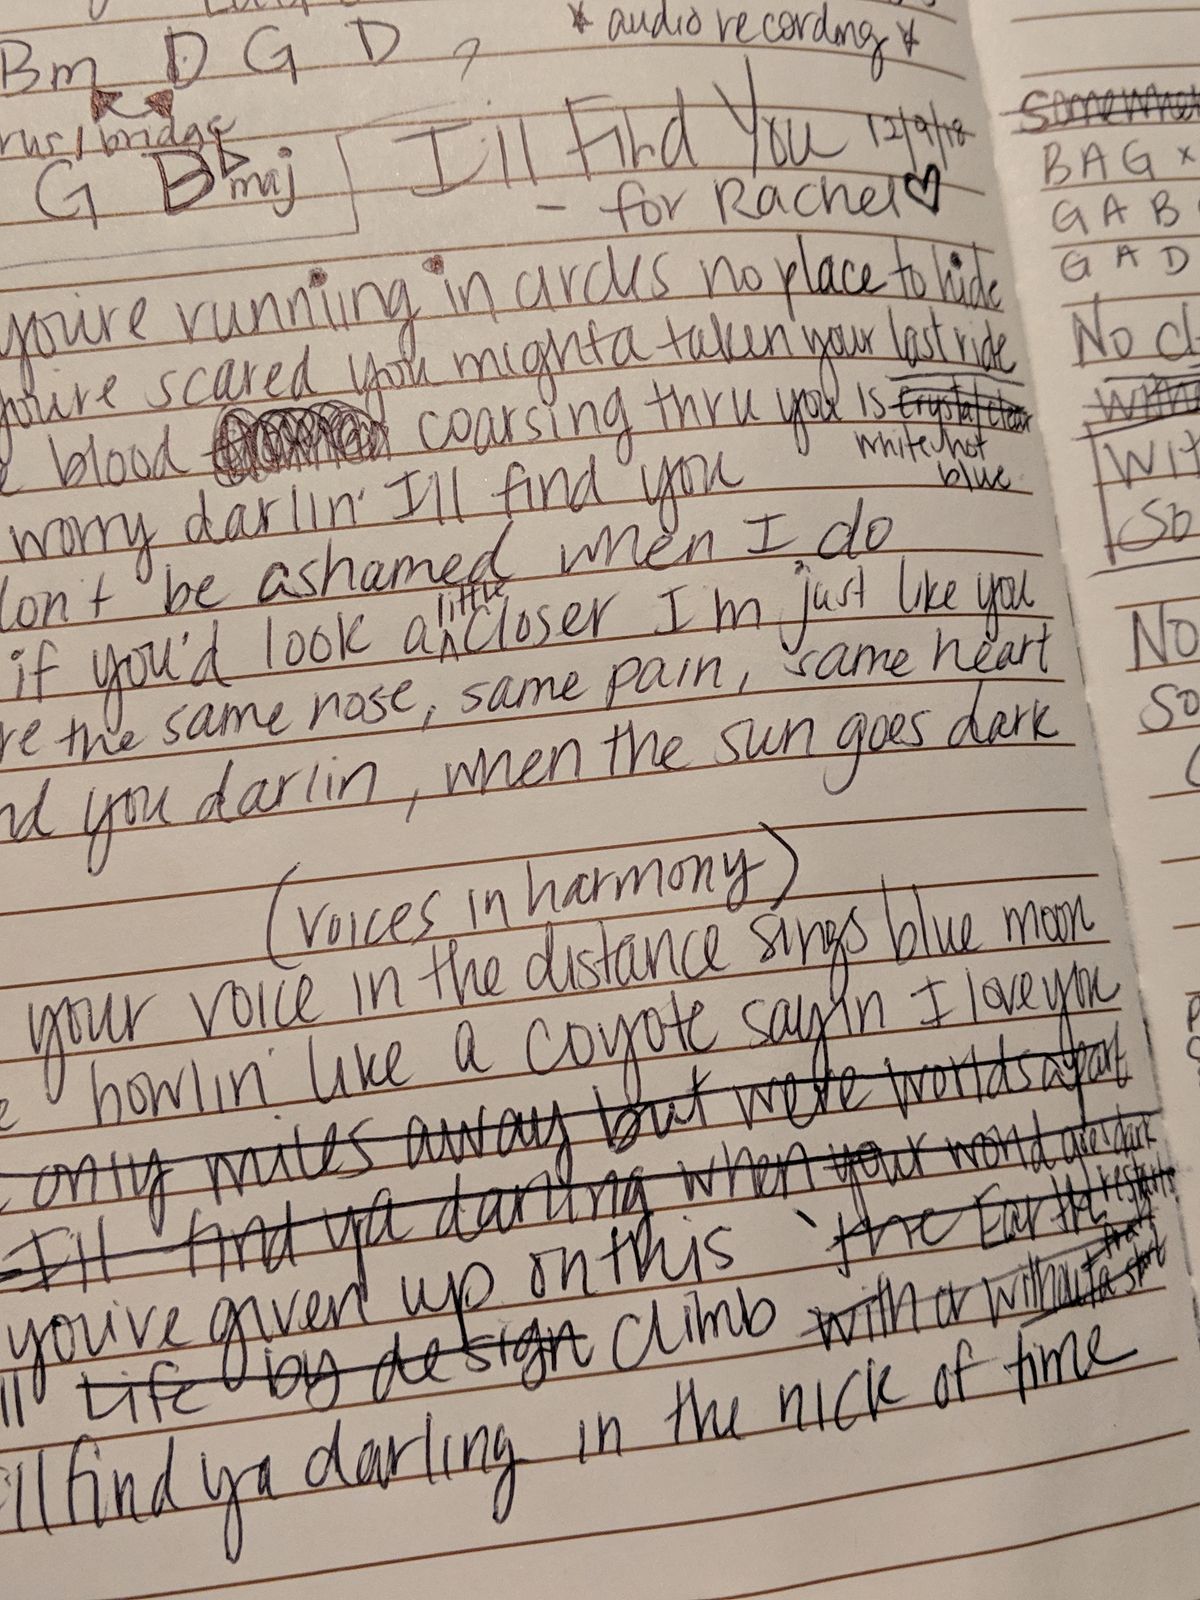 Bm D G D , * audio recording *
rus/bridge
G Dbmaj I'll Find You 12/9/18
- for Rachel ♡
you're running in circles no place to hide
you're scared you mighta taken your last ride
e blood coarsing thru you is crystal clear
white hot
blue
worry darlin' I'll find you
don't be ashamed when I do
if you'd look a little closer I'm just like you
re the same nose, same pain, same heart
nd you darlin, when the sun goes dark
(voices in harmony)
your voice in the distance sings blue moon
howlin' like a coyote sayin I love you
only miles away but we're worlds apart
I'll find ya darling when your world goes dark
you've given up on this the Earth restarts
ll life by design climb with or without a start
'll find ya darling in the nick of time
somewhe
BAG x
GAB
GAD
No cl
with
Wit
So
No
So